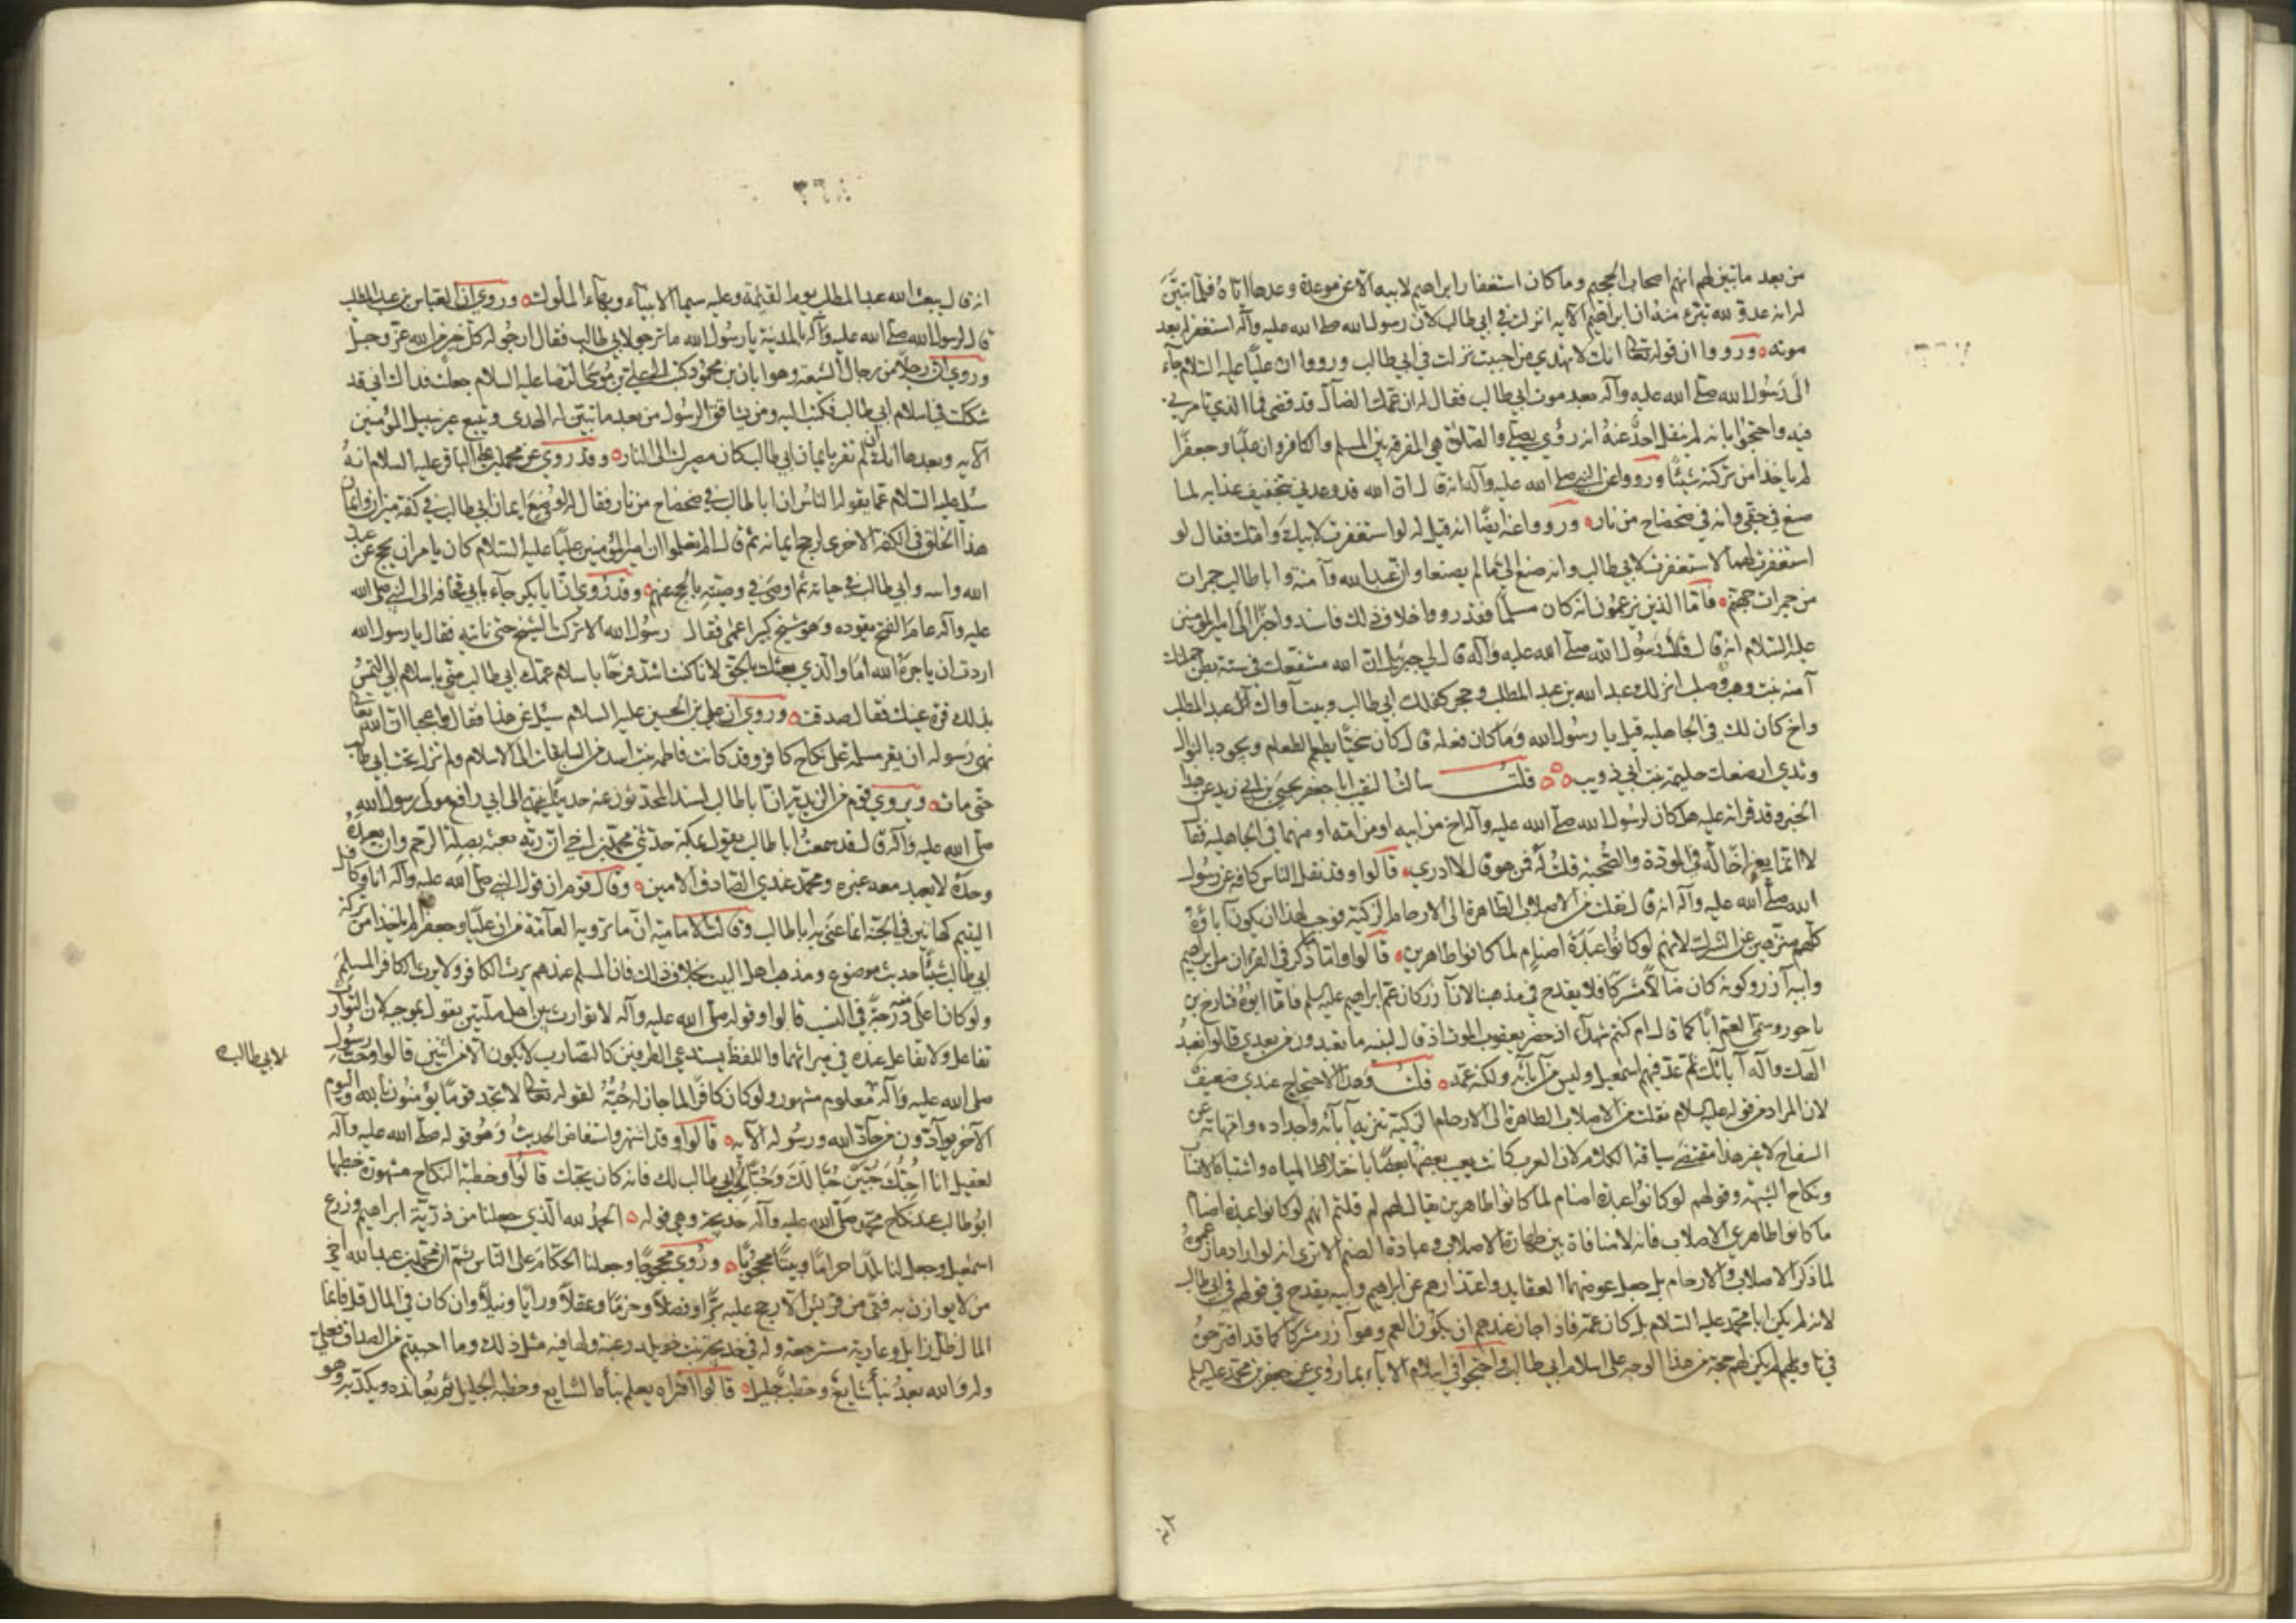 من بعد ما تبين لهم انهم اصحاب الجحيم وما كان استغفار ابراهيم لابيه الا عن موعدة وعدها اياه فلما تبين
له انه عدو لله تبرء منه ان ابراهيم الآية انزلت في ابي طالب لان رسول الله صلى الله عليه وآله استغفر له بعد
موته ورووا ان قوله تعالى انك لا تهدي من احببت نزلت في ابي طالب ورووا ان عليا عليه السلام جاء
الى رسول الله صلى الله عليه وآله بعد موت ابي طالب فقال له ان عمك الضال قد قضى فما الذي تامرني
فيه واحتجوا بانه لم ينقل احد عنه انه رؤي يصلي والصلاة هي المفرقة بين المسلم والكافر وان عليا وجعفرا
لم ياخذا من تركته شيئا ورووا عن النبي صلى الله عليه وآله انه قال ان الله قد وعدني بتخفيف عذابه لما
صنع في حقي وانه في ضحضاح من نار ورووا عنه ايضا انه قيل له لو استغفرت لابيك وامك فقال لو
استغفرت لهما لاستغفرت لابي طالب وانه صنع الي ما لم يصنعا وان عبد الله وآمنة وابا طالب جمرات
من جمرات جهنم فاما الذين يزعمون انه كان مسلما فقد رووا خلاف ذلك فاسندوا خبرا الى امير المؤمنين
عليه السلام انه قال قال رسول الله صلى الله عليه وآله قال لي جبرئيل ان الله مشفعك في ستة بطن حملتك
آمنة بنت وهب وصلب انزلك عبد الله بن عبد المطلب وحجر كفلك ابي طالب وبيت آواك عبد المطلب
واخ كان لك في الجاهلية قيل يا رسول الله وما كان فعله قال كان سخيا يطعم الطعام ويجود بالنوال
وثدي ارضعتك حليمة بنت ابي ذويب قلت سالت النقيب ابا جعفر يحيى بن ابي زيد عن هذا
الخبر وقد قراته عليه هل كان لرسول الله صلى الله عليه وآله اخ من ابيه او من امه او منهما في الجاهلية فقال
لا انما يعني اخا له في المودة والصحبة قلت له فمن هو قال لا ادري قالوا وقد نقل الناس كافة عن رسول
الله صلى الله عليه وآله انه قال نقلت من الاصلاب الطاهرة الى الارحام الزكية فوجب بهذا ان يكون آباؤه
كلهم منزهين عن الشرك لانهم لو كانوا عبدة اصنام لما كانوا طاهرين قالوا واما ما ذكر في القرآن من ابراهيم
وابيه آزر وكونه كان ضالا مشركا فلا يقدح في مذهبنا لان آزر كان عم ابراهيم عليه السلم فاما ابوه فتارخ بن
ناحور وسمي العم ابا كما قال ام كنتم شهداء اذ حضر يعقوب الموت اذ قال لبنيه ما تعبدون من بعدي قالوا نعبد
الهك واله آبائك ثم عد فيهم اسمعيل وليس من آبائه ولكنه عمه قلت وهذا الاحتجاج عندي ضعيف
لان المراد من قوله عليه السلام نقلت من الاصلاب الطاهرة الى الارحام الزكية تنزيه آبائه واجداده وامهاته عن
السفاح لا غير هذا مقتضى سياقة الكلام لان العرب كانت يعيب بعضها بعضا باختلاط المياه واشتباه الانساب
ونكاح الشبهة وقولهم لو كانوا عبدة اصنام لما كانوا طاهرين يقال لهم لم قلتم انهم لو كانوا عبدة اصنام
ما كانوا طاهري الاصلاب فانه لا منافاة بين طهارة الاصلاب وعبادة الصنم الا ترى انه لو اراد ما زعموه
لما ذكر الاصلاب والارحام بل جعل عوضهما العقايد واعتذارهم عن ابراهيم وابيه يقدح في قولهم في ابي طالب
لانه لم يكن ابا محمد عليه السلام بل كان عمه فاذا جاز عندهم ان يكون العم وهو آزر مشركا كما قد اقترحوه
في تاويلهم لم يكن لهم حجة من هذا الوجه على اسلام ابي طالب واحتجوا في اسلام الآباء بما روي عن جعفر بن محمد عليه السلم
انه قال يبعث الله عبد المطلب يوم القيمة وعليه سيما الانبياء وبهاء الملوك وروي ان العباس بن عبد المطلب
قال لرسول الله صلى الله عليه وآله بالمدينة يا رسول الله ما ترجو لابي طالب فقال ارجو له كل خير من الله عز وجل
وروي ان رجلا من رجال الشيعة وهو ابان بن محمود كتب الى علي بن موسى الرضا عليه السلام جعلت فداك اني قد
شككت في اسلام ابي طالب فكتب اليه ومن يشاقق الرسول من بعد ما تبين له الهدى ويتبع غير سبيل المؤمنين
الآية وبعدها انك ان لم تقر بايمان ابي طالب كان مصيرك الى النار وقد روي عن محمد بن علي الباقر عليه السلام انه
سئل عليه السلام عما يقوله الناس ان ابا طالب في ضحضاح من نار فقال لو وضع ايمان ابي طالب في كفة ميزان وايمان
هذا الخلق في الكفة الاخرى لرجح ايمانه ثم قال الم تعلموا ان امير المؤمنين عليا عليه السلام كان يامر ان يحج عن عبد
الله وابيه وابي طالب في حياته ثم اوصى في وصيته بالحج عنهم وقد روي ان ابا بكر جاء بابي قحافة الى النبي صلى الله
عليه وآله عام الفتح يقوده وهو شيخ كبير اعمى فقال رسول الله الا تركت الشيخ حتى ناتيه فقال يا رسول الله
اردت ان ياجره الله اما والذي بعثك بالحق لانا كنت اشد فرحا باسلام عمك ابي طالب مني باسلام ابي التمس
بذلك قرة عينك فقال صدقت وروي ان علي بن الحسين عليه السلام سئل عن هذا فقال واعجبا ان الله تعالى
نهى رسوله ان يقر مسلمة على نكاح كافر وقد كانت فاطمة بنت اسد من السابقات الى الاسلام ولم تزل تحت ابي طالب
حتى مات ويروي قوم من الزيدية ان ابا طالب اسند المحدثون عنه حديثا ينتهي الى ابي رافع مولى رسول الله
صلى الله عليه وآله قال لقد سمعت ابا طالب يقول بمكة حدثني محمد بن اخي ان ربه بعثه بصلة الرحم وان يعبده
وحده لا يعبد معه غيره ومحمد عندي الصادق الامين وقال قوم ان قول النبي صلى الله عليه وآله انا وكافل
اليتيم كهاتين في الجنة انما عنى به ابا طالب وقالت الامامية ان ما ترويه العامة من ان عليا وجعفرا لم ياخذا من تركة
ابي طالب شيئا حديث موضوع ومذهب اهل البيت بخلاف ذلك فان المسلم عندهم يرث الكافر ولا يرث الكافر المسلم
ولو كان اعلى درجة منه في النسب قالوا وقوله صلى الله عليه وآله لا توارث بين اهل ملتين نقول بموجبه لان التوارث
تفاعل ولا تفاعل عنده في ميراثهما واللفظ يستدعي الطرفين كالتضارب لا يكون الا من اثنين قالوا وحب رسول
صلى الله عليه وآله معلوم مشهور ولو كان كافرا لما جاز له حبه لقوله تعالى لا تجد قوما يؤمنون بالله واليوم
لابي طالب
الآخر يوادون من حاد الله ورسوله الآية قالوا وقد اشتهر واستفاض الحديث وهو قوله صلى الله عليه وآله
لعقيل انا احبك حبين حبا لك وحبا لحب ابي طالب لك فانه كان يحبك قالوا وخطبة النكاح مشهورة خطبها
ابو طالب عند نكاح محمد صلى الله عليه وآله خديجة وهي قوله الحمد لله الذي جعلنا من ذرية ابراهيم وزرع
اسمعيل وجعل لنا بلدا حراما وبيتا محجوبا وروي محجوجا وجعلنا الحكام على الناس ثم ان محمد بن عبد الله اخي
من لا يوازن به فتى من قريش الا رجح عليه برا وفضلا وحزما وعقلا ورايا ونبلا وان كان في المال قل فانما
المال ظل زايل وعارية مسترجعة وله في خديجة بنت خويلد رغبة ولها فيه مثل ذلك وما احببتم من الصداق فعلي
وله والله بعد نبأ شايع وخطب جليل قالوا افتراه يعلم نبأه الشايع وخطبه الجليل ثم يعانده ويكذبه وهو